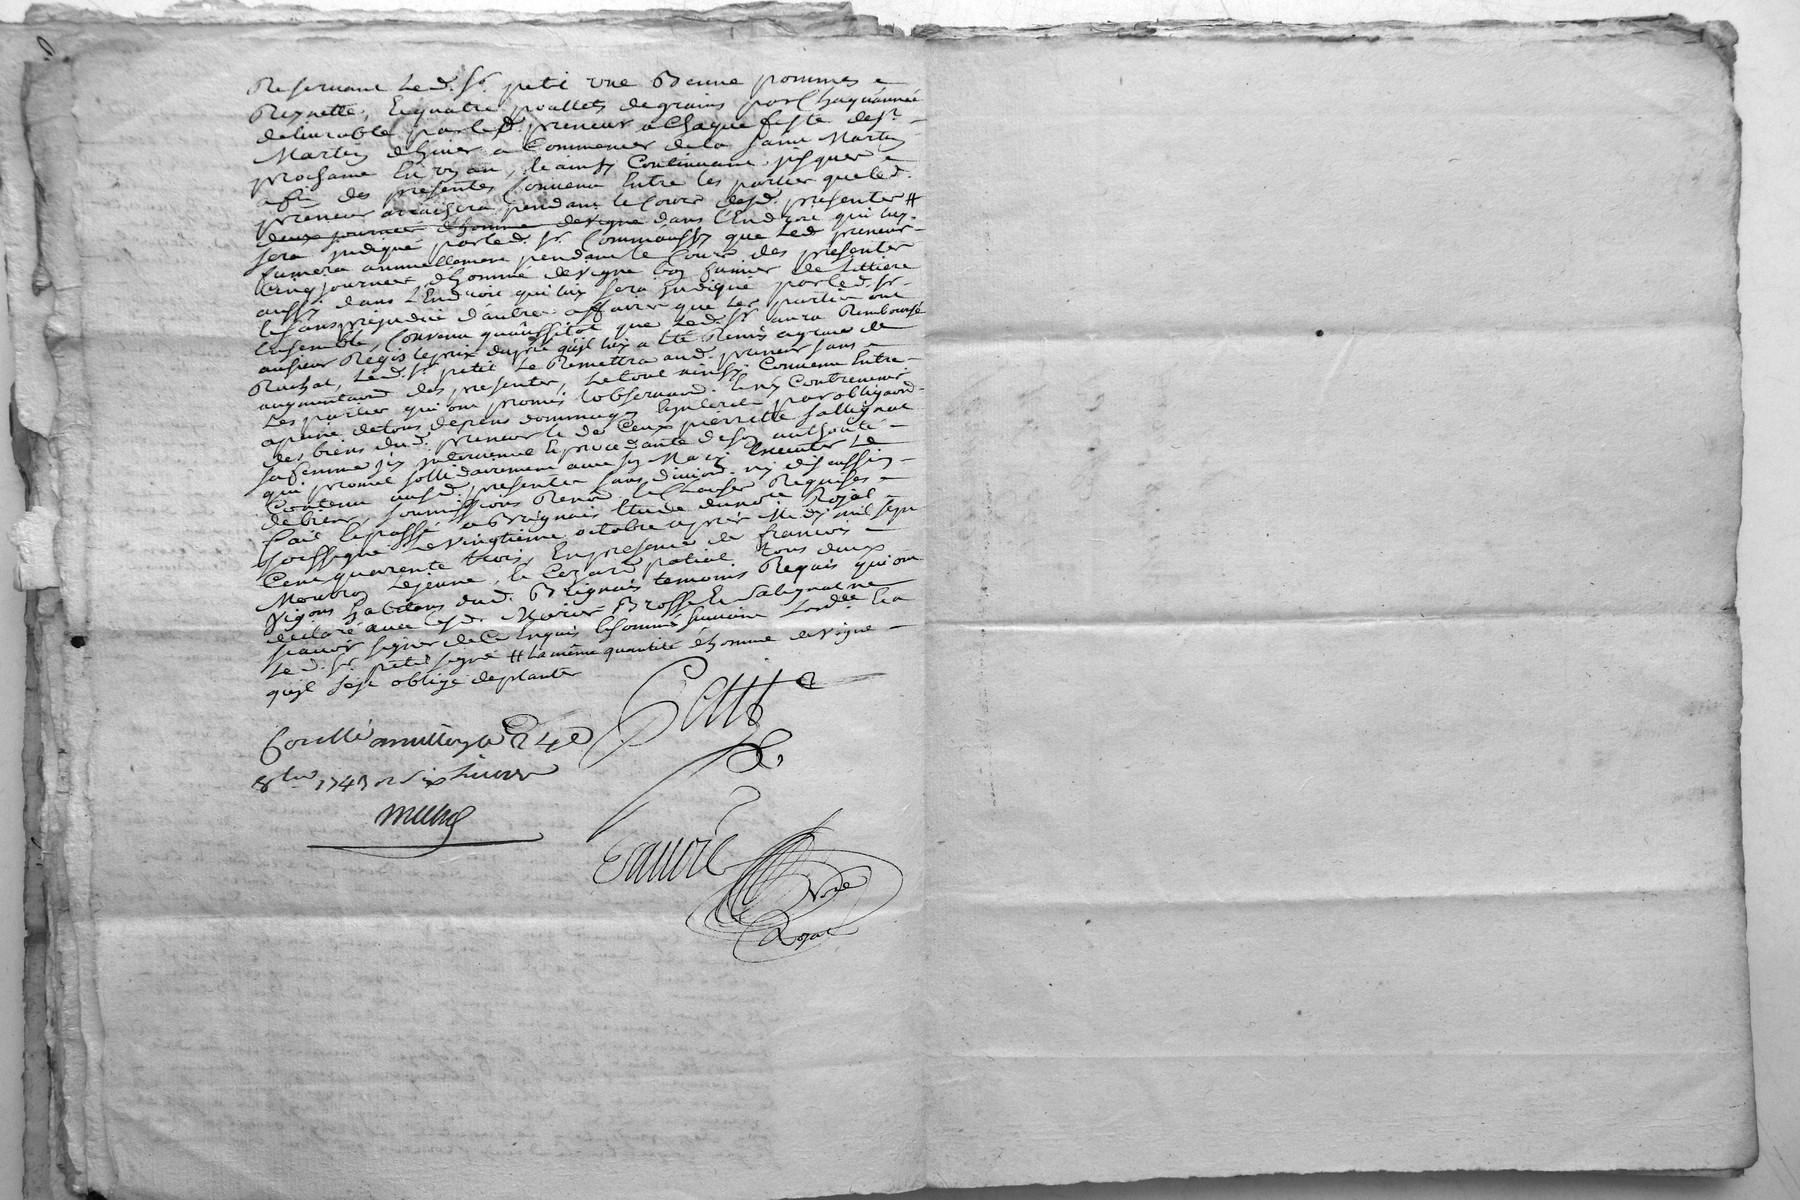 Reservant Led. Sr. petit une Benne pommes
Reynette, Et quatre poullets degrains par Chaqu'année
delivrable par led. preneur a Chaque feste de St.
Martin dhiver a Commencer de la saint Martin
prochaine En un an, Et ainsy Continuant jusques a
a fin des presentes Convenu Entre les parties que led.
preneur arrachera pendant le Cours desd. presentes #
deux journées d'homme devigne dans l'Endroit qui luy
sera indiqué par led. Sr. Comm'aussy que Led. preneur
fumera annuellement pendant le Cours des presentes
Cinq journées d'homme devigne bon fumier de Littiere
aussy dans L'Endroit qui luy sera Indiqué par led. Sr.
Et sans prejudice d'autres affaires que Les parties ont
Ensemble, Convenu qu'aussitot que Led. Sr. aura Remboursé
au sieur Regis le prix du pré qu'il luy a Eté Remis a grace de
Rachat, Led. Sr. petit Le Remettra aud. preneur sans
augmentation des presentes, Le tout ainsy Convenu Entre
Les parties qui ont promis l'observer Et ny Contrevenir
a peine de tous depens dommages par obligaon.
des biens dud. preneur Et de Ceux pierrette Sallignat
sa femme jcy Intervenue Et procedante de son authorité
qui promet sollidairement avec son Mary Executer Le
Contenu ausd. presentes sans division ny discussion
de biens, soumissions Renon. Et Clauses Requises
fait Et passé a Brignais Etude dunore Royal
soussigné Le vingtieme octobre apres Midy mil sept
Cent quarente trois, En presence de françois
Mouton Lejeune, Et Cezard patial tous deux
Vignons habitans dud. Brignais temoins Requis qui ont
declaré avec lesd. Mariés Brosse Et Salignat ne
scavoir signer de Ce Enquis Et sommés suivant Lordce. Et a
Le d. Sr. petit signé # La même quantité d'homme de vigne
qu'il s'est obligé deplanter
Petit
Conllé a millery le 24e
8bre 1743 R. Six livres
Fauvre
Nore
Royal